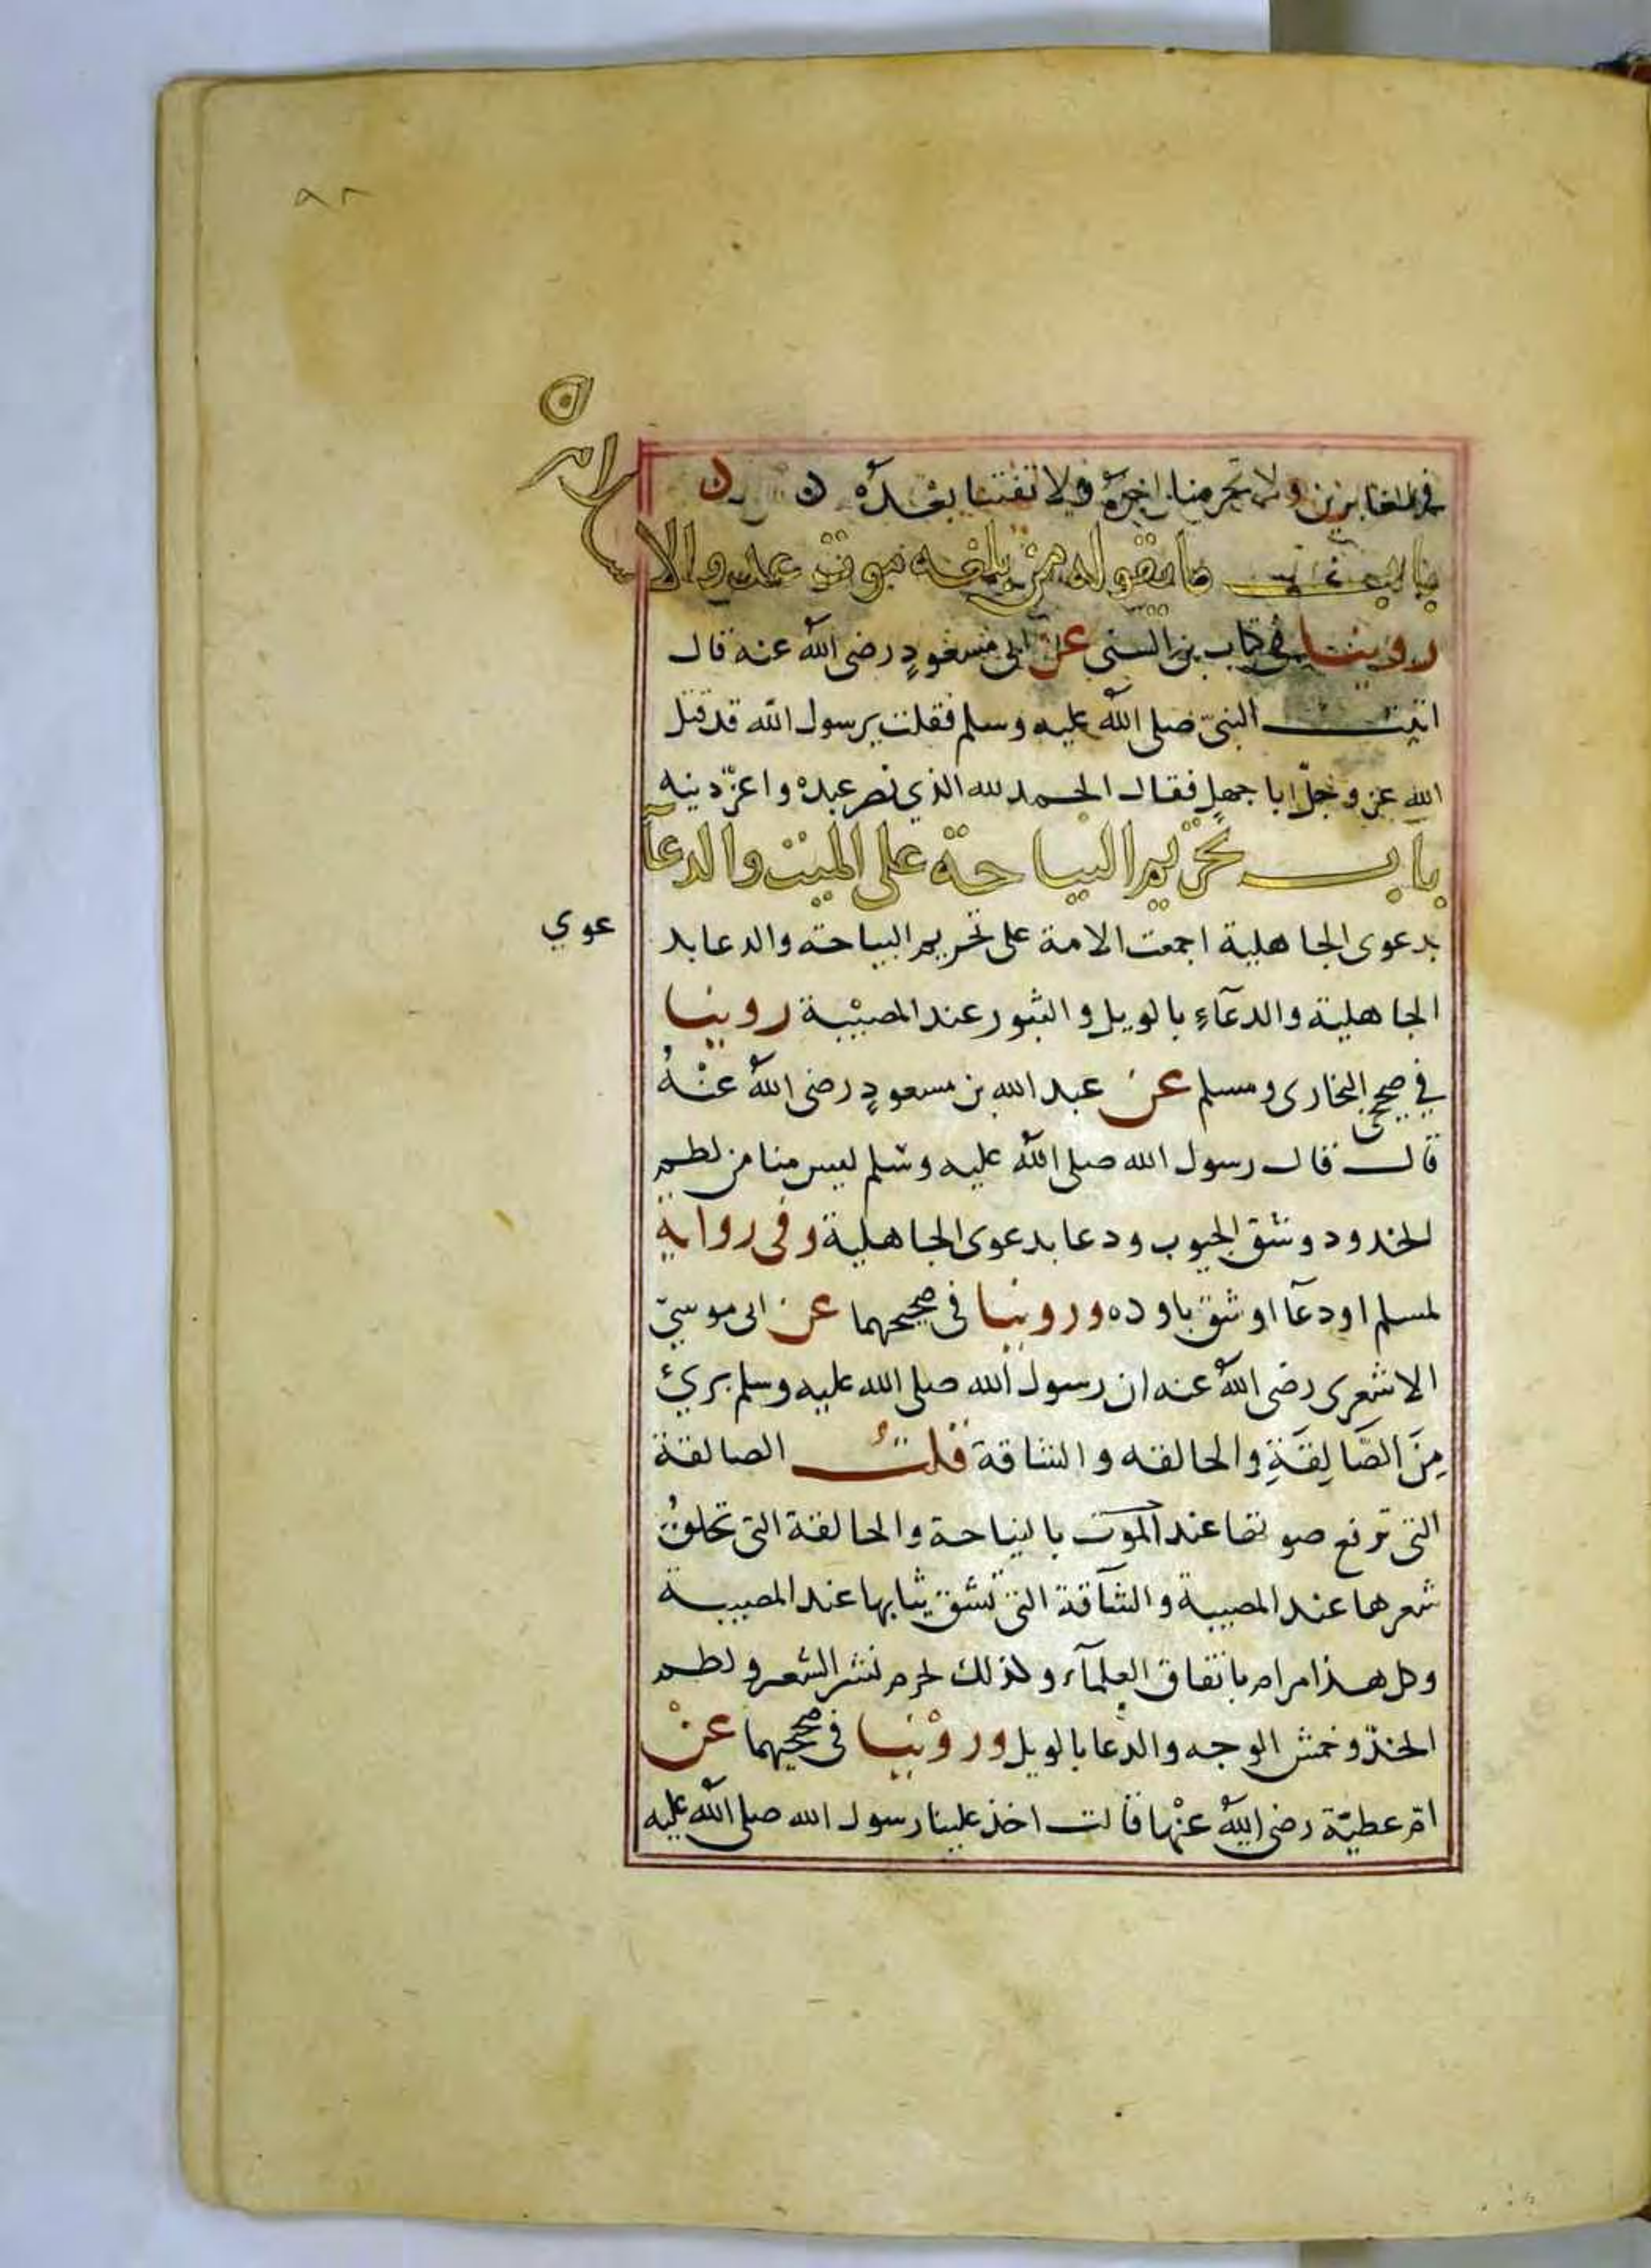 ٩٨
في الغابرين ولا تحرمنا اجره ولا تفتنا بعده ن ن
باب ما يقوله من بلغه موت عدو الا
سلام
روينا في كتاب بن السني عن ابي مسعودٍ رضي الله عنه قال
اتيت النبيّ صلى الله عليه وسلم فقلت يرسول الله قد قتل
الله عز وجلّ ابا جهلٍ فقال الحمد لله الذي نصر عبده واعزّ دينه
باب تحريم النياحة على الميت والدعآ
بدعوى الجاهلية اجمعت الامة على تحريم النياحة والدعا بد
عوي
الجاهلية والدعآءِ بالويل والثبور عند المصيبة روينا
في صحيحي البخاري ومسلم عن عبد الله بن مسعودٍ رضي الله عنهُ
قال قال رسول الله صلى الله عليه وسلم ليس منا من لطم
الخدود وشق الجيوب ودعا بدعوى الجاهلية وفي رواية
لمسلم او دعآ او شق باو ده وروينا في صحيحهما عن ابي موسيّ
الاشعري رضي الله عنه ان رسول الله صلى الله عليه وسلم بريئ
مِنَ الصَّالِقَةِ والحالقه والشاقة قلتُ الصالقة
التي ترفع صوتها عند الموت بالنياحة والحالقة التي تحلقُ
شعرها عند المصيبة والشآقة التي تشق ثيابها عند المصيبة
وكل هذا مرام باتفاق العلمآء وكذلك لحرم نشر الشعر ولطم
الخدّ وخمش الوجه والدعا بالويل وروينا في صحيحيهما عنْ
امّ عطيّة رضي الله عنها قالت اخذ علينا رسول الله صلى الله عليه